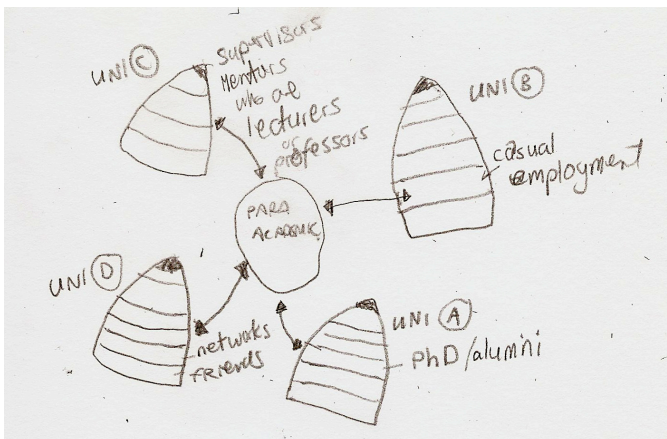 UNI C
supervisors
Mentors
who are
lecturers
or
professors
UNI B
casual
employment
PARA
ACADEMIC
UNI D
networks
FRIENDS
UNI A
PhD/alumni